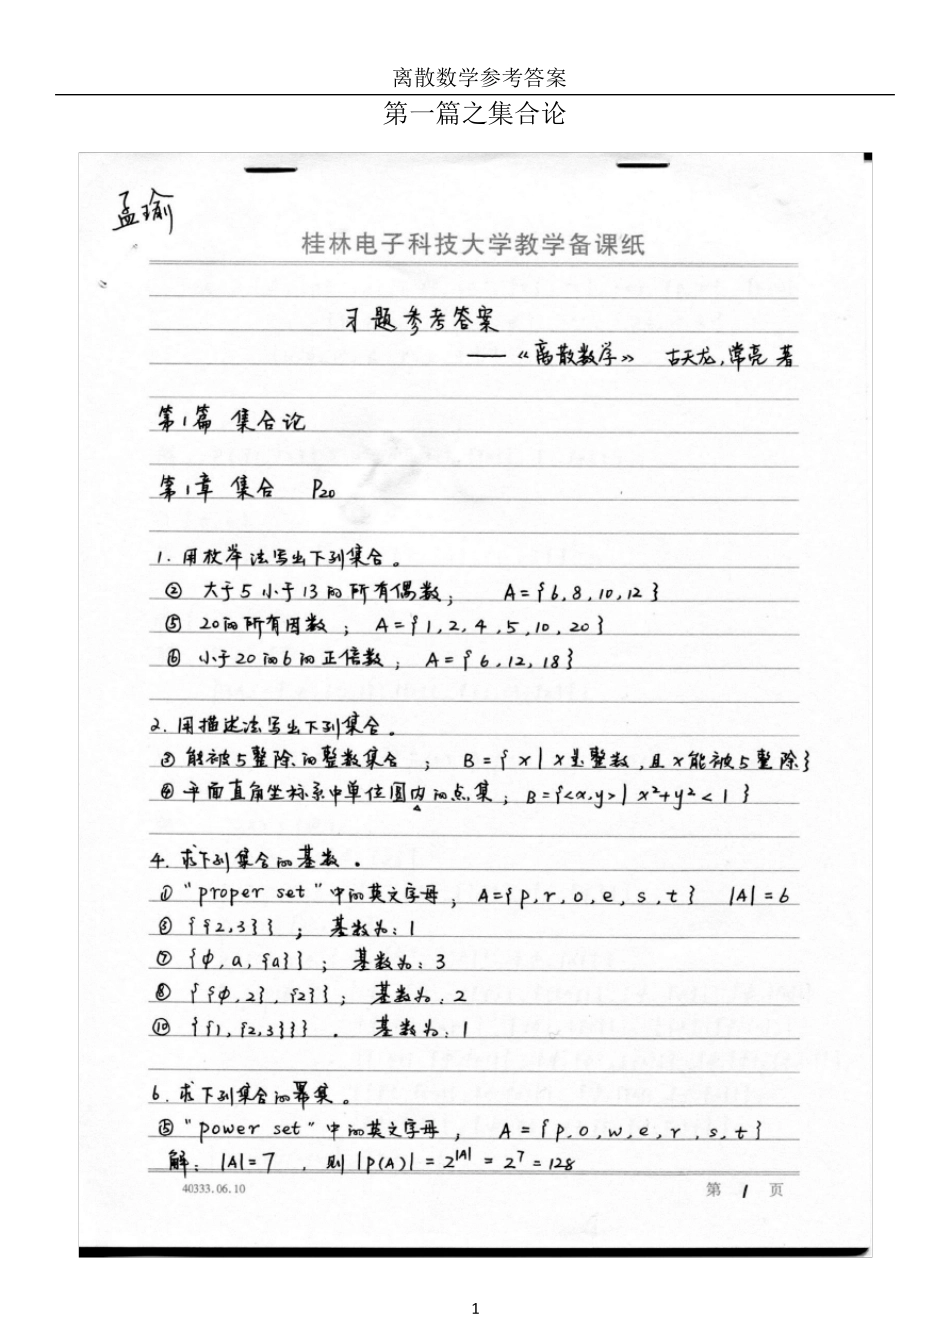 离散数学参考答案
第一篇之集合论
孟瑜
桂林电子科技大学教学备课纸
习题参考答案
——《离散数学》 古天龙,常亮 著
第1篇 集合论
第1章 集合 P20
1. 用枚举法写出下列集合。
② 大于5小于13的所有偶数; A={6,8,10,12}
⑤ 20的所有因数; A={1,2,4,5,10,20}
⑥ 小于20的6的正倍数; A={6,12,18}
2. 用描述法写出下列集合。
③ 能被5整除的整数集合; B={x|x是整数,且x能被5整除}
④ 平面直角坐标系中单位圆内的点集; B={<x,y>|x²+y²<1}
4. 求下列集合的基数。
① "proper set"中的英文字母; A={p,r,o,e,s,t} |A|=6
⑤ {{2,3}}; 基数为:1
⑦ {φ,a,{a}}; 基数为:3
⑧ {{φ,2},{2}}; 基数为:2
⑩ {{1,{2,3}}}. 基数为:1
6. 求下列集合的幂集。
⑤ "power set"中的英文字母; A={p,o,w,e,r,s,t}
解: |A|=7, 则|P(A)|=2^|A|=2⁷=128
40333.06.10 第 1 页
1